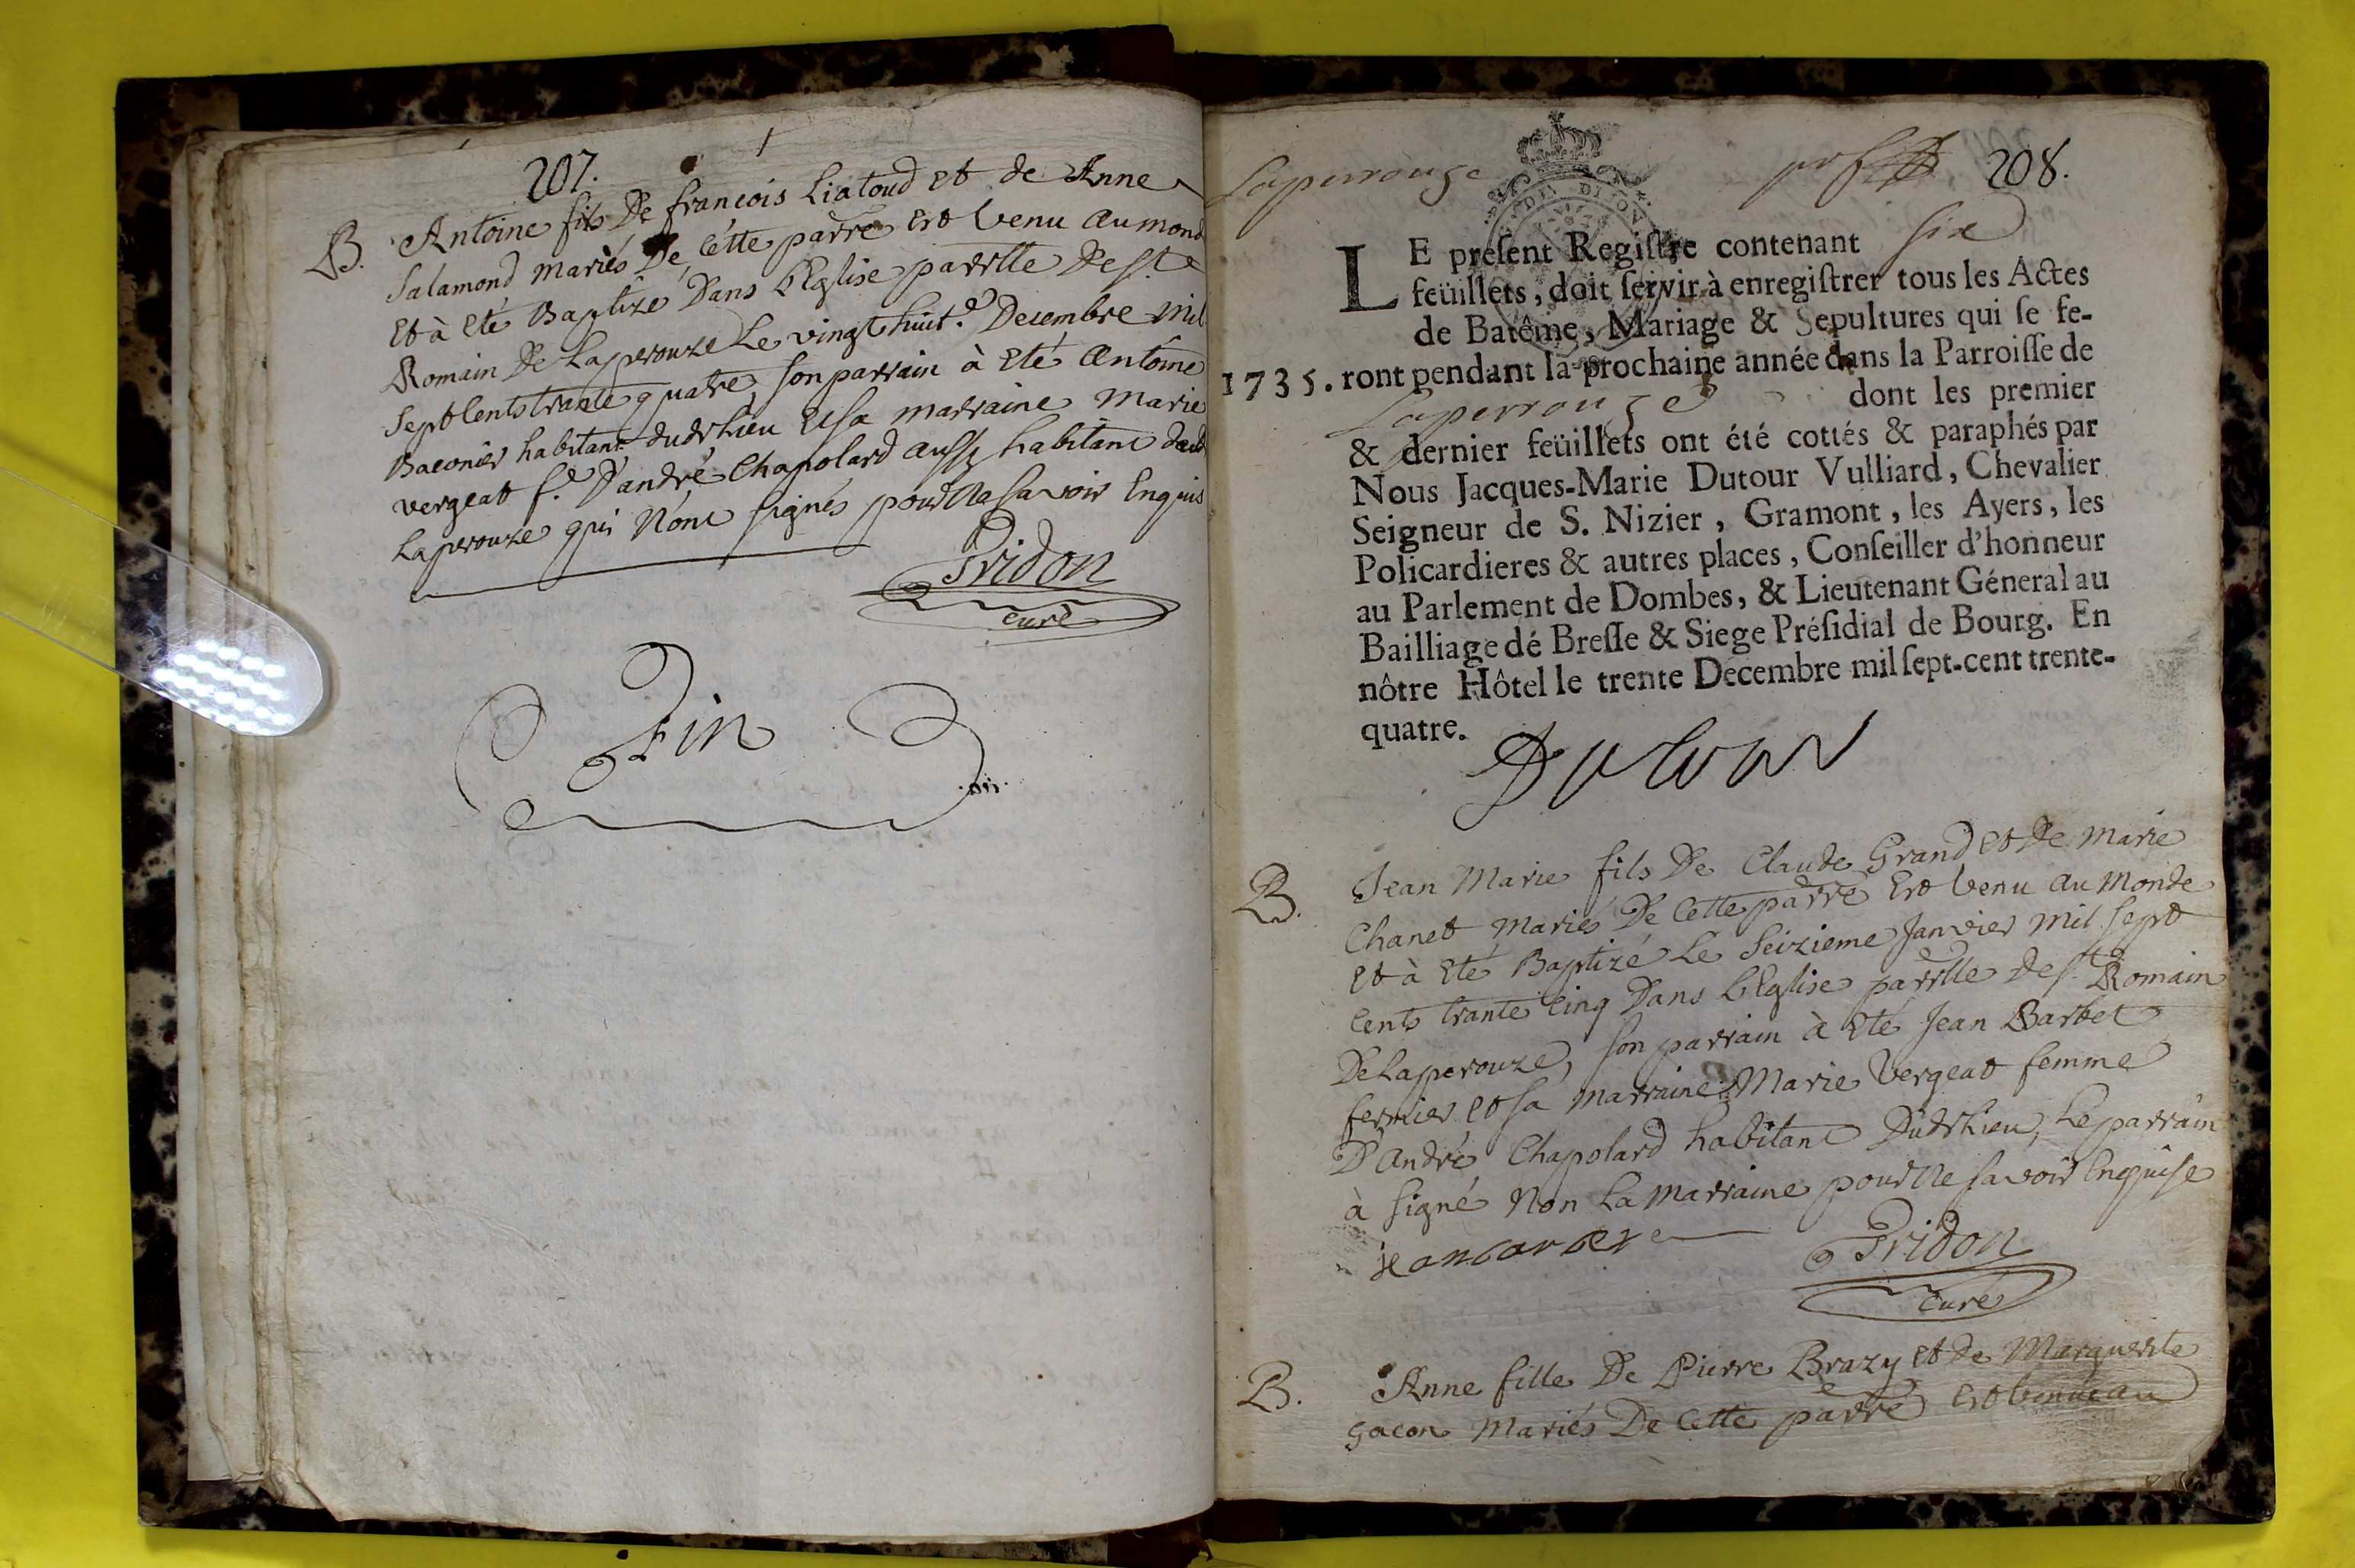 207.
B. Antoine fils De francois Liatoud et de Anne
Salamond mariés De Cette parre est Venu au mond
et à eté Baptize Dans L'Eglise parrlle De st
Romain De Laperouze Le vingt huit.e Decembre mil
sept Cents trante quatre, son parrain à eté antoine
Baconier habitant dudt Lieu et sa marraine marie
vergeat f.e D'andré Chapolard aussy habitant dud
Laperouze qui n'ont signés pour ne savoir Enquis
Pridon
curé
Fin
Laperrouze
208.
LE present Registre contenant six
feüillets, doit servir à enregistrer tous les Actes
de Batême, Mariage & Sepultures qui se fe-
1735. ront pendant la prochaine année dans la Parroisse de
Laperrouze dont les premier
& dernier feüillets ont été cottés & paraphés par
Nous Jacques-Marie Dutour Vulliard, Chevalier
Seigneur de S. Nizier, Gramont, les Ayers, les
Policardieres & autres places, Conseiller d'honneur
au Parlement de Dombes, & Lieutenant Géneral au
Bailliage dé Bresse & Siege Présidial de Bourg. En
nôtre Hôtel le trente Decembre mil sept-cent trente-
quatre.
Dutour
B. Jean Marie fils De Claude Grand et De marie
Chanet mariés De Cette parre est Venu au monde
et à eté Baptizé Le Seizieme Janvier mil sept
Cents trante Cinq Dans L'Eglise parrlle De st Romain
De Laperouze, son parrain à eté Jean Barbet
fermier et sa marraine Marie Vergeat femme
D'André Chapolard habitant Dudt Lieu, Le parrain
à signé non La marraine pour ne savoir Enquise
jean barbet
Pridon
curé
B. Anne fille De Pierre Brazy et de Marguerite
gacon mariés De Cette parre est Venue au